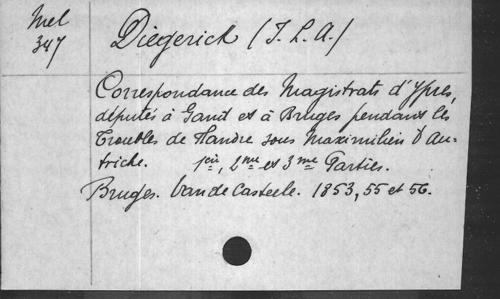 Mel
347
Diegerick (I. L. A.)
Correspondance des Magistrats d'Ypres,
députés à Gand et à Bruges pendant les
Troubles de Flandre sous Maximilien d'Au-
triche. 1ère, 2me et 3me Parties.
Bruges. Vandecasteele. 1853, 55 et 56.